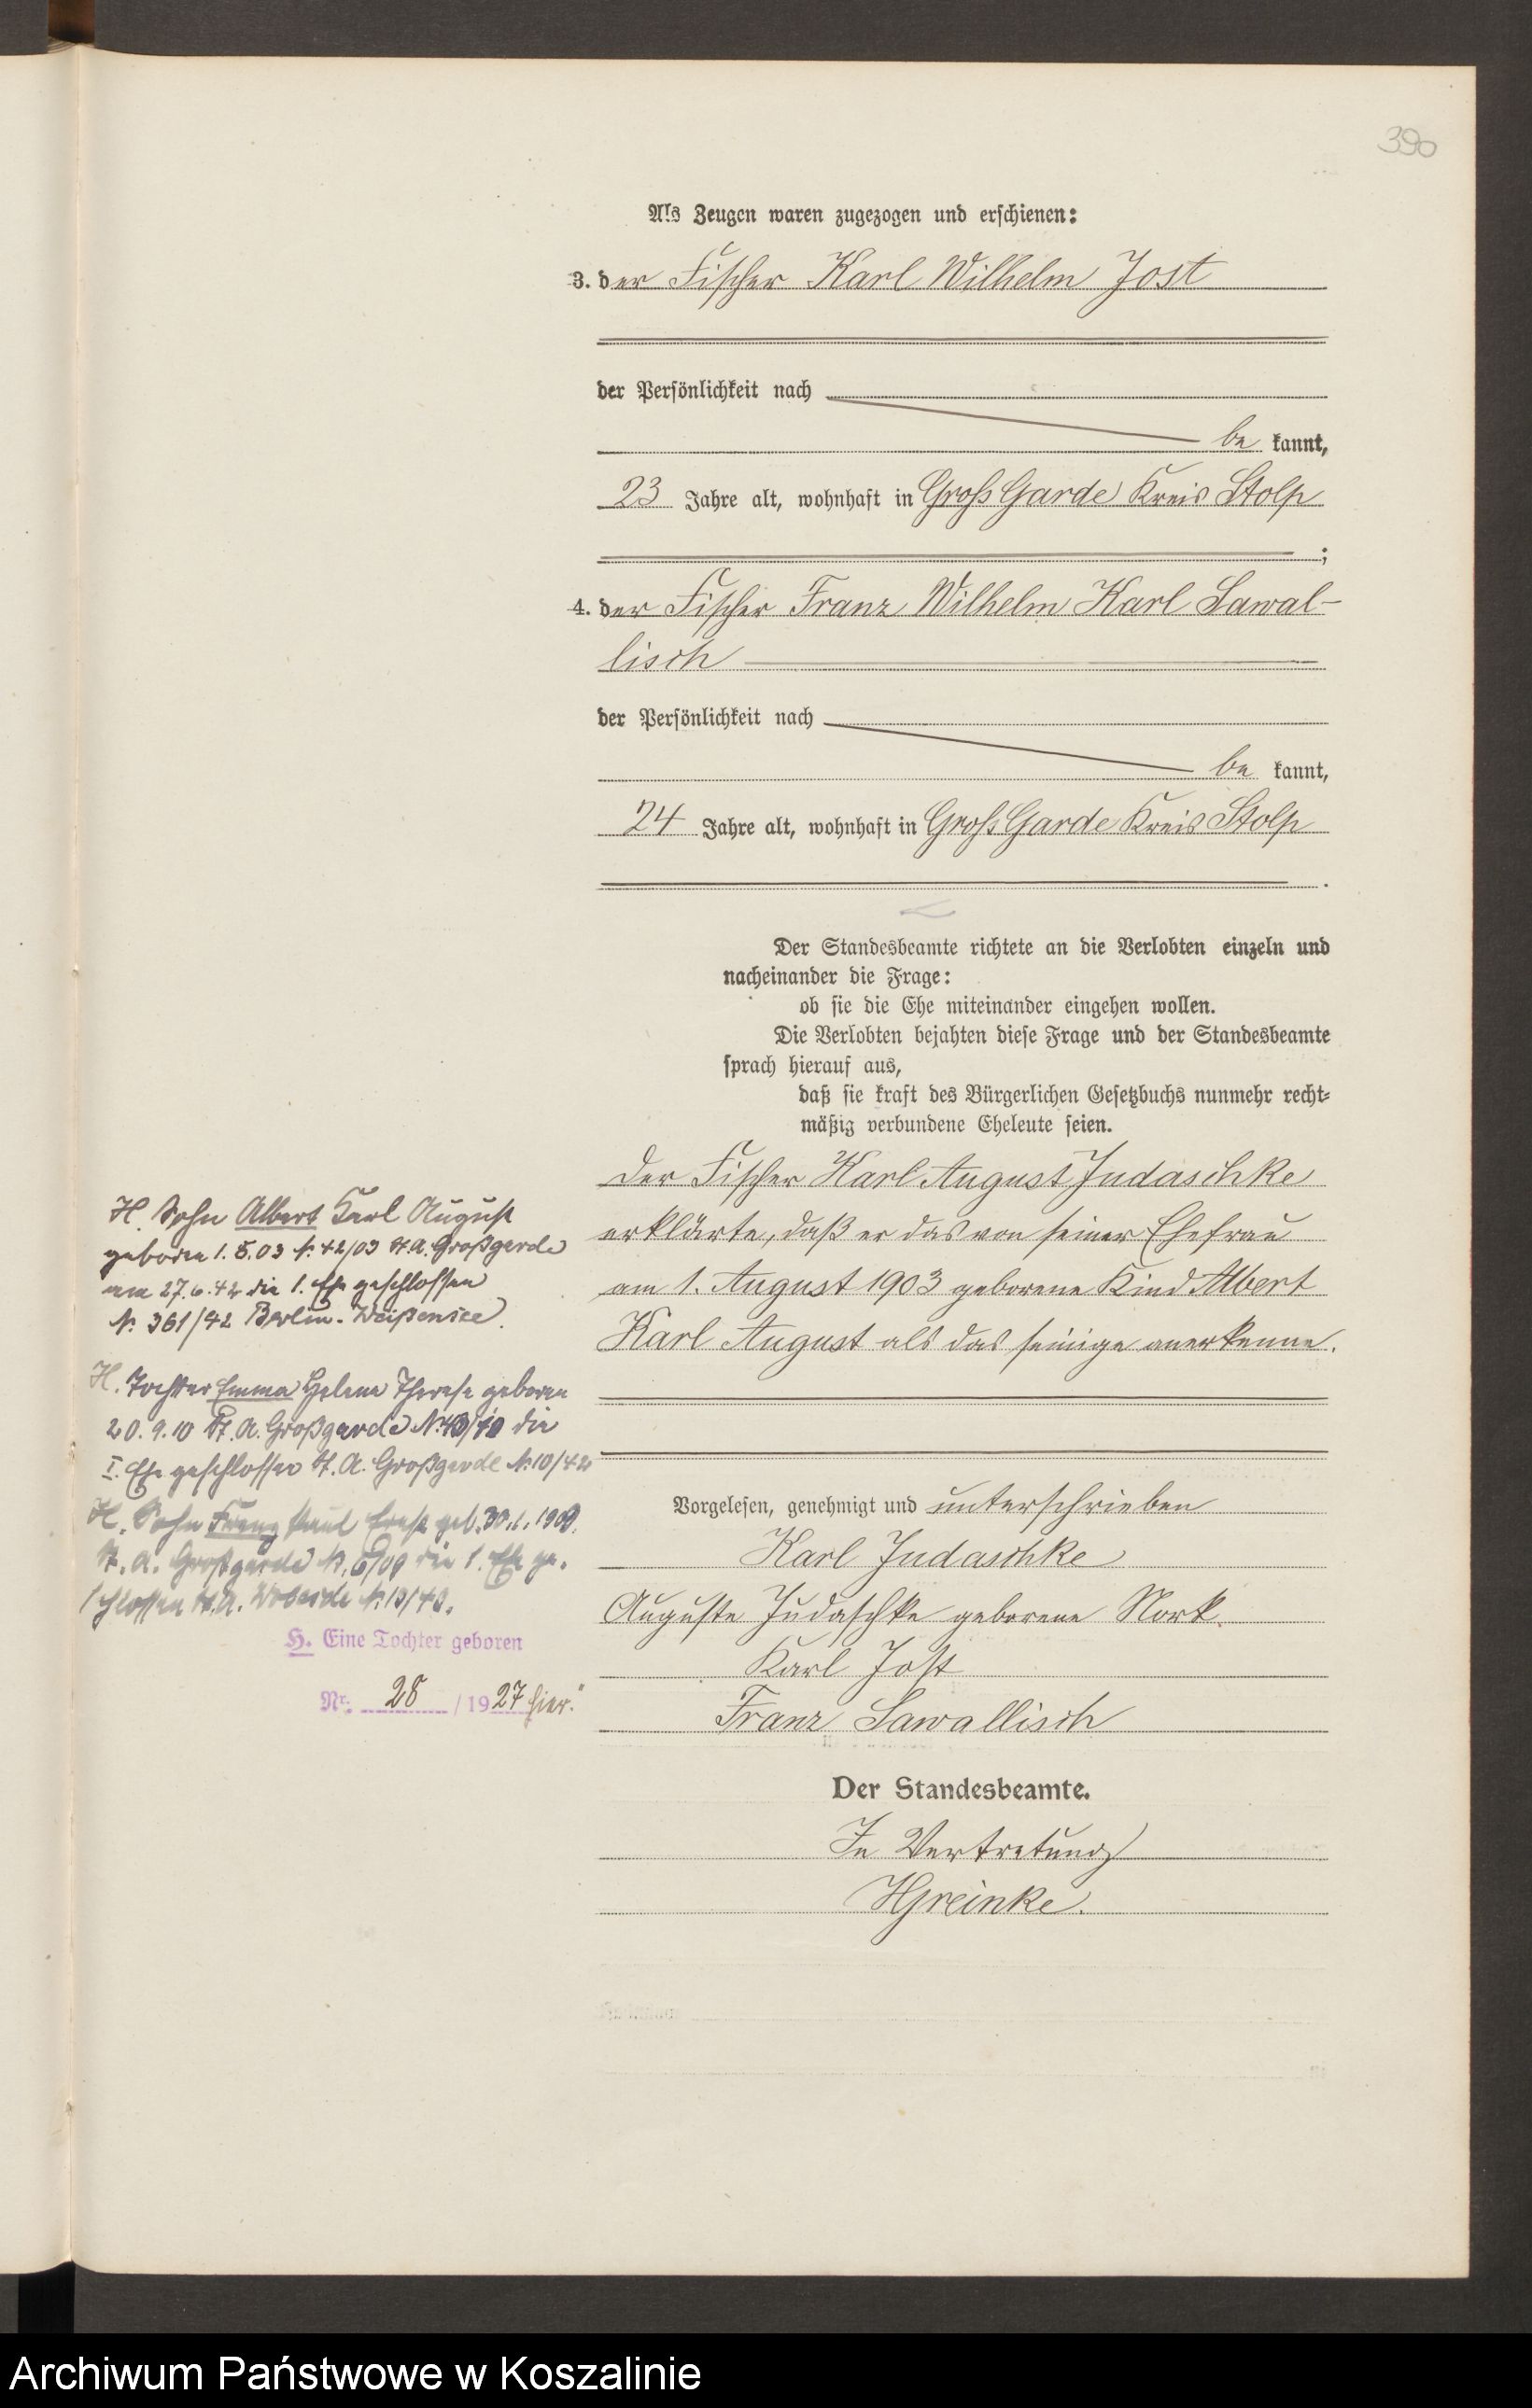 390
Als Zeugen waren zugezogen und erschienen:
3. der Fischer Karl Wilhelm Jost
der Persönlichkeit nach
be kannt,
23 Jahre alt, wohnhaft in Groß Garde Kreis Stolp
;
4. der Fischer Franz Wilhelm Karl Sawal-
lisch
der Persönlichkeit nach
be kannt,
24 Jahre alt, wohnhaft in Groß Garde Kreis Stolp
.
Der Standesbeamte richtete an die Verlobten einzeln und
nacheinander die Frage:
ob sie die Ehe miteinander eingehen wollen.
Die Verlobten bejahten diese Frage und der Standesbeamte
sprach hierauf aus,
daß sie kraft des Bürgerlichen Gesetzbuchs nunmehr recht-
mäßig verbundene Eheleute seien.
Der Fischer Karl August Judaschke
erklärte, daß er das von seiner Ehefrau
am 1. August 1903 geborene Kind Albert
Karl August als das seinige anerkenne.
Vorgelesen, genehmigt und unterschrieben
Karl Judaschke
Auguste Judaschke geborene Nork.
Karl Jost
Franz Sawallisch
Der Standesbeamte.
In Vertretung
HGreinke.
H. Sohn Albert Karl August
geboren 1. 8. 03 N. 42/03 St. A. Großgarde
am 27. 6. 42 die 1. Ehe geschlossen
N. 361/42 Berlin-Weißensee.
H. Tochter Emma Helene Therese geboren
20. 9. 10 St. A. Großgarde N. 43/10 die
I. Ehe geschlossen St. A. Großgarde N. 10/42
H. Sohn Franz Paul Ernst geb. 30. 1. 1909.
St. A. Großgarde N. 6/09 die 1. Ehe ge-
schlossen St. A. N. 10/40.
H. Eine Tochter geboren
Nr. 28 / 1927 hier."
Archiwum Państwowe w Koszalinie